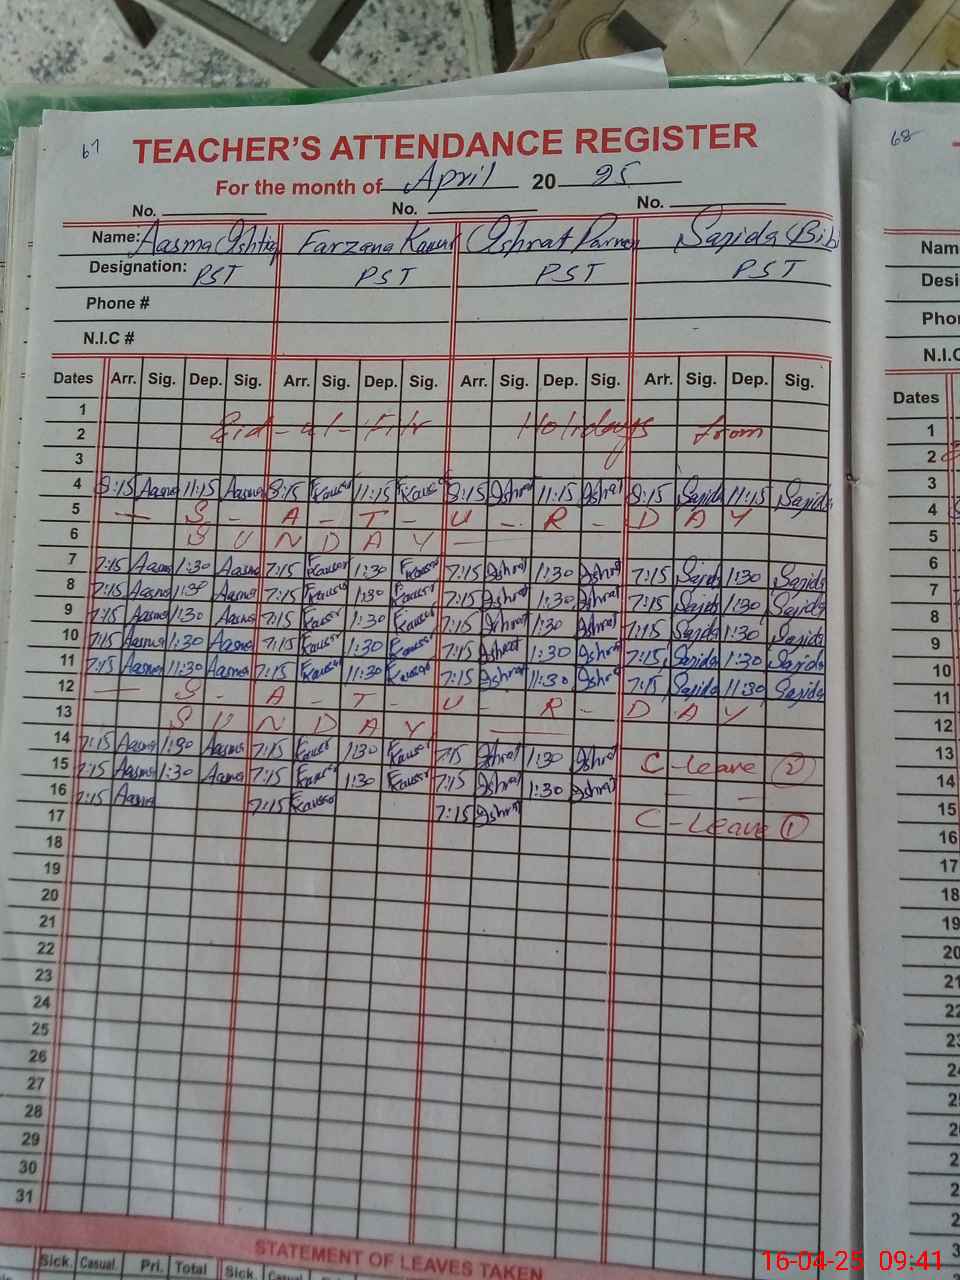 67
TEACHER'S ATTENDANCE REGISTER
For the month of April 20 25
No. No. No.
Name: Aasma Ishtiq Farzana Kausar Ishrat Parveen Sajida Bibi
Designation: PST PST PST PST
Phone #
N.I.C #
Dates Arr. Sig. Dep. Sig. Arr. Sig. Dep. Sig. Arr. Sig. Dep. Sig. Arr. Sig. Dep. Sig.
1
2 Eid-ul-Fitr Holidays from
3
4 8:15 Aasma 11:15 Aasma 8:15 Kausar 11:15 Kausar 8:15 Ishrat 11:15 Ishrat 8:15 Sajida 11:15 Sajida
5 - S - A - T - U - R - D A Y
6 S U N D A Y
7 7:15 Aasma 1:30 Aasma 7:15 Kausar 1:30 Kausar 7:15 Ishrat 1:30 Ishrat 7:15 Sajida 1:30 Sajida
8 7:15 Aasma 1:30 Aasma 7:15 Kausar 1:30 Kausar 7:15 Ishrat 1:30 Ishrat 7:15 Sajida 1:30 Sajida
9 7:15 Aasma 1:30 Aasma 7:15 Kausar 1:30 Kausar 7:15 Ishrat 1:30 Ishrat 7:15 Sajida 1:30 Sajida
10 7:15 Aasma 1:30 Aasma 7:15 Kausar 1:30 Kausar 7:15 Ishrat 1:30 Ishrat 7:15 Sajida 1:30 Sajida
11 7:15 Aasma 11:30 Aasma 7:15 Kausar 11:30 Kausar 7:15 Ishrat 11:30 Ishrat 7:15 Sajida 11:30 Sajida
12 - S - A - T - U - R - D A Y
13 S U N D A Y
14 7:15 Aasma 1:30 Aasma 7:15 Kausar 1:30 Kausar 7:15 Ishrat 1:30 Ishrat C-leave 2
15 7:15 Aasma 1:30 Aasma 7:15 Kausar 1:30 Kausar 7:15 Ishrat 1:30 Ishrat
16 7:15 Aasma 7:15 Kausar 7:15 Ishrat C-Leave 1
17
18
19
20
21
22
23
24
25
26
27
28
29
30
31
STATEMENT OF LEAVES TAKEN
Sick. Casual. Pri. Total Sick.
68
Name
N.I.C
Dates
1
2
3
4
5
6
7
8
9
10
11
12
13
14
15
16
17
18
19
20
16-04-25 09:41